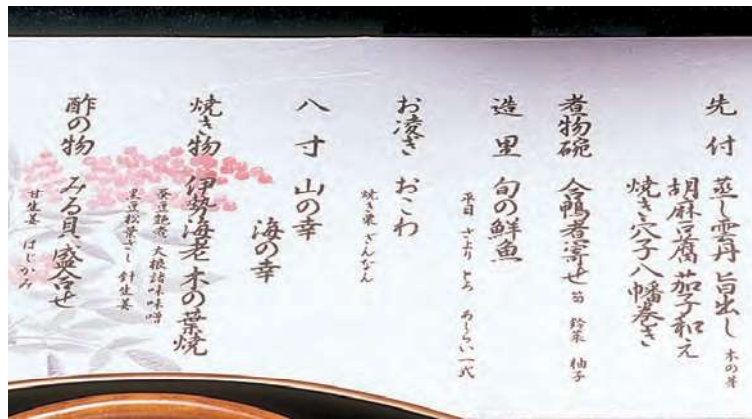 先付 蒸し雲丹 旨出し 木の芽
胡麻豆腐 茄子和え
焼き穴子八幡巻き
煮物碗 合鴨君寄せ 筍 鈴菜 柚子
造里 旬の鮮魚
平目 さより とろ あしらい一式
お凌ぎ おこわ
焼き栗 ぎんなん
八寸 山の幸
海の幸
焼き物 伊勢海老木の葉焼
蚕豆艶煮 大根諸味味噌
黒豆松葉さし 針生姜
酢の物 みる貝、盛合せ
甘生姜 はじかみ